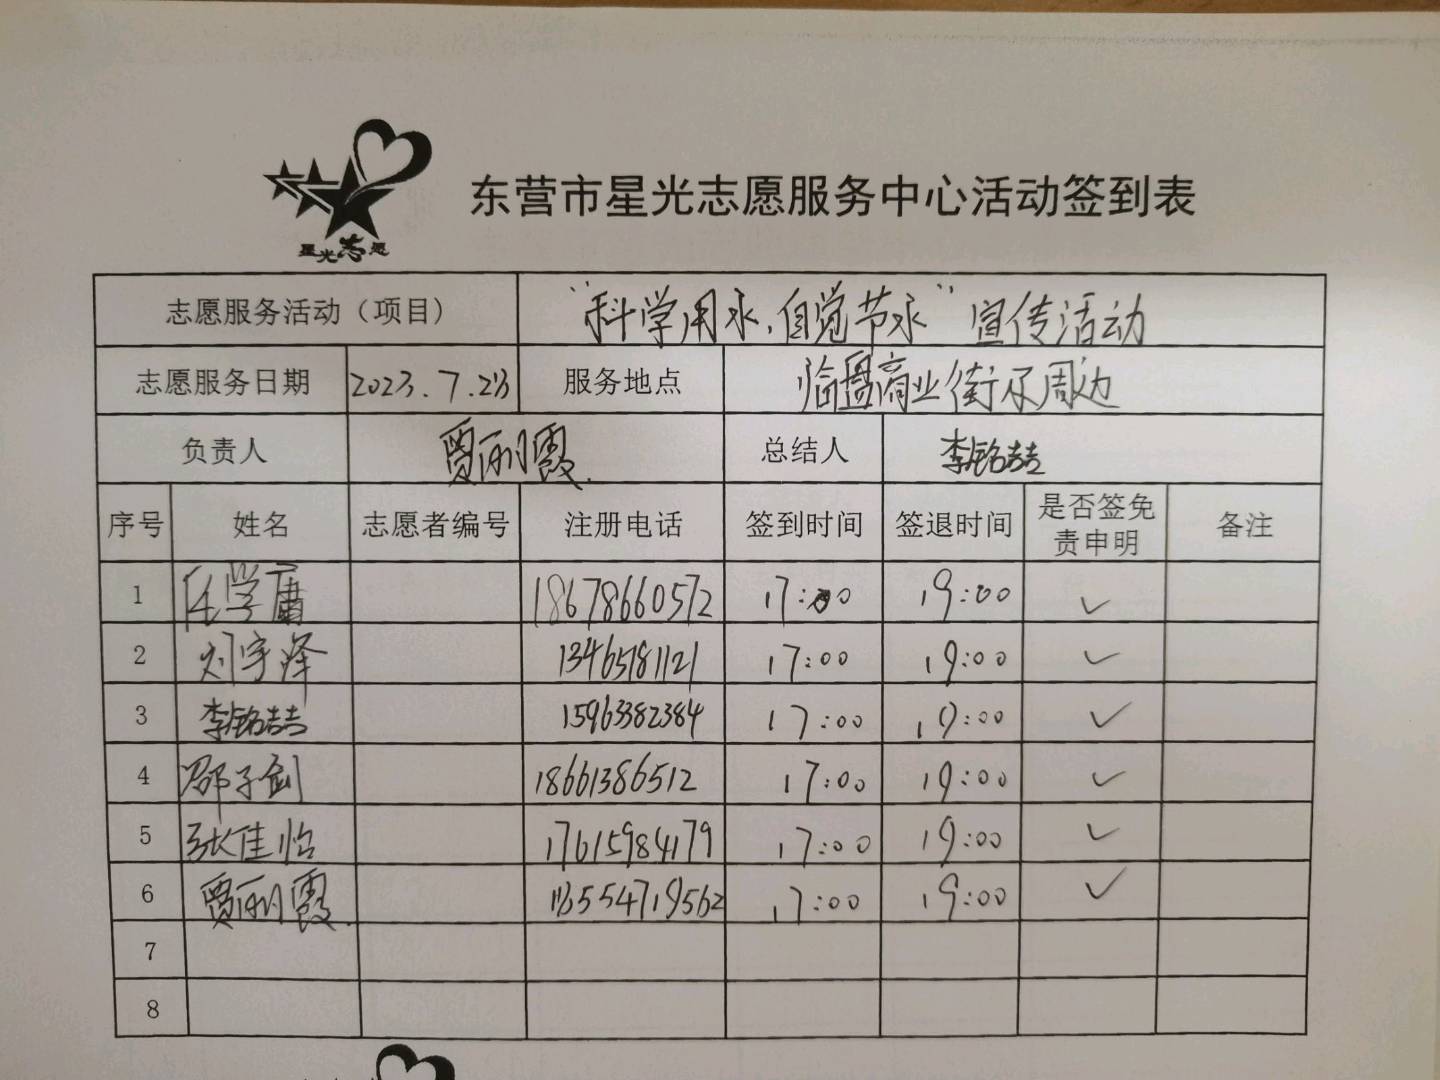 星光志愿
东营市星光志愿服务中心活动签到表
志愿服务活动（项目） “科学用水,自觉节水”宣传活动
志愿服务日期 2023.7.28 服务地点 临盘商业街及周边
负责人 贾丽霞 总结人 李铭喆
序号 姓名 志愿者编号 注册电话 签到时间 签退时间 是否签免责申明 备注
1 任学庸 18678660572 17:00 19:00 ✓
2 刘宇泽 13465181121 17:00 19:00 ✓
3 李铭喆 15963382384 17:00 19:00 ✓
4 邵子剑 18661386512 17:00 19:00 ✓
5 张佳怡 17615984179 17:00 19:00 ✓
6 贾丽霞 17:00 19:00 ✓
7
8